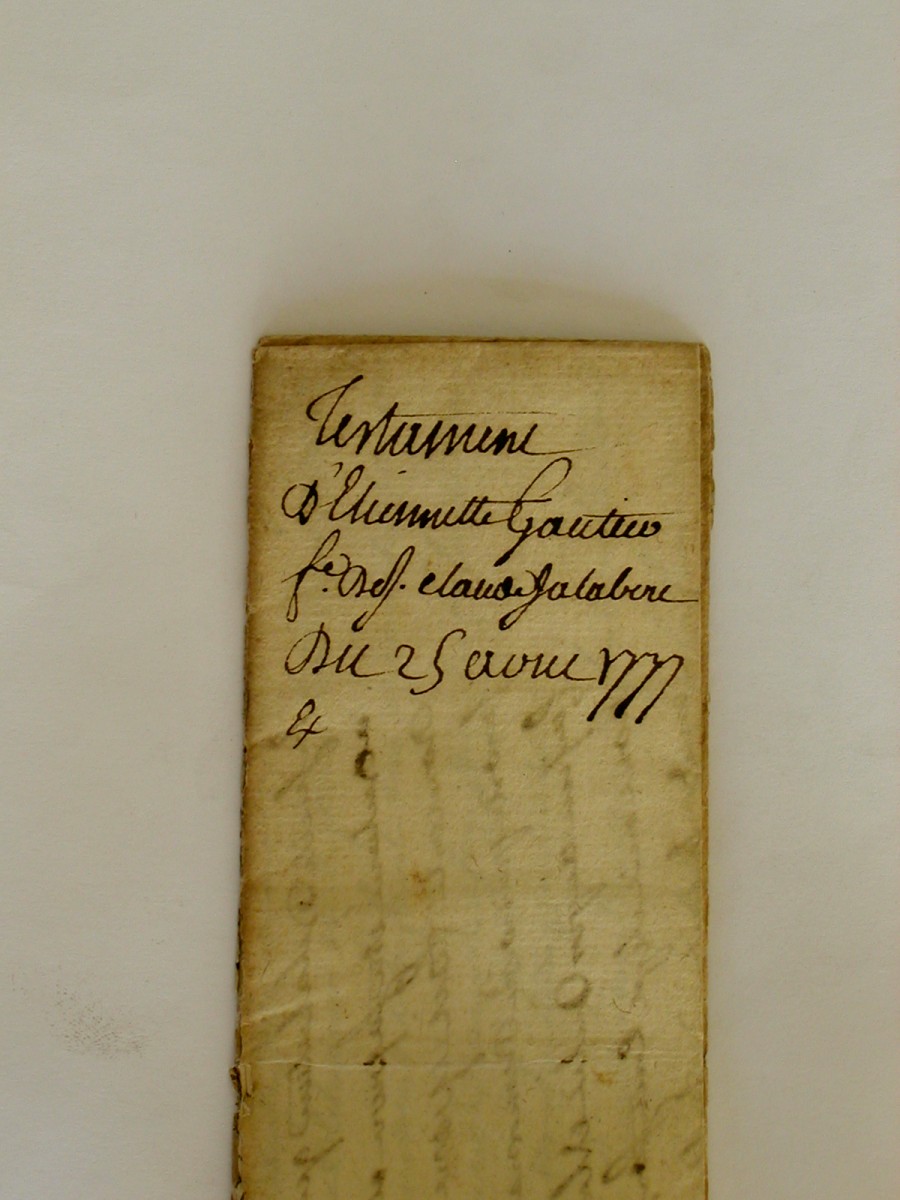 Testament
D'Etiennette Gautier
fe. De S. Claude Jalabert
Du 25 avril 1777
Ex